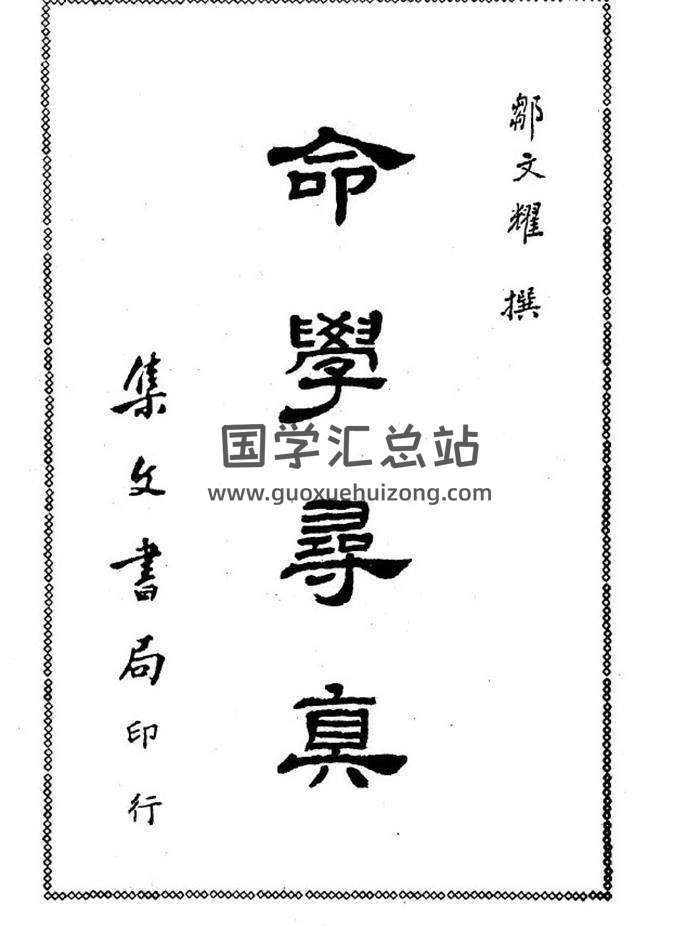 鄒文耀 撰
命學尋真
集文書局印行
国学汇总站
www.guoxuehuizong.com